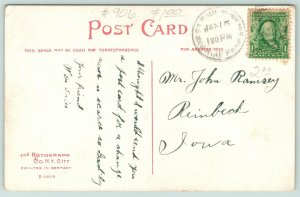 #906 100
POST CARD
THIS SPACE MAY BE USED FOR CORRESPONDENCE
FOR ADDRESS ONLY
JAN 15
1 30 PM
I thought I would send you
a post card for a change
now is scarce so
Your friend
Mr. John Ramsey
Reinbeck
Iowa
THE ROTOGRAPH
CO. N.Y. CITY
PRINTED IN GERMANY